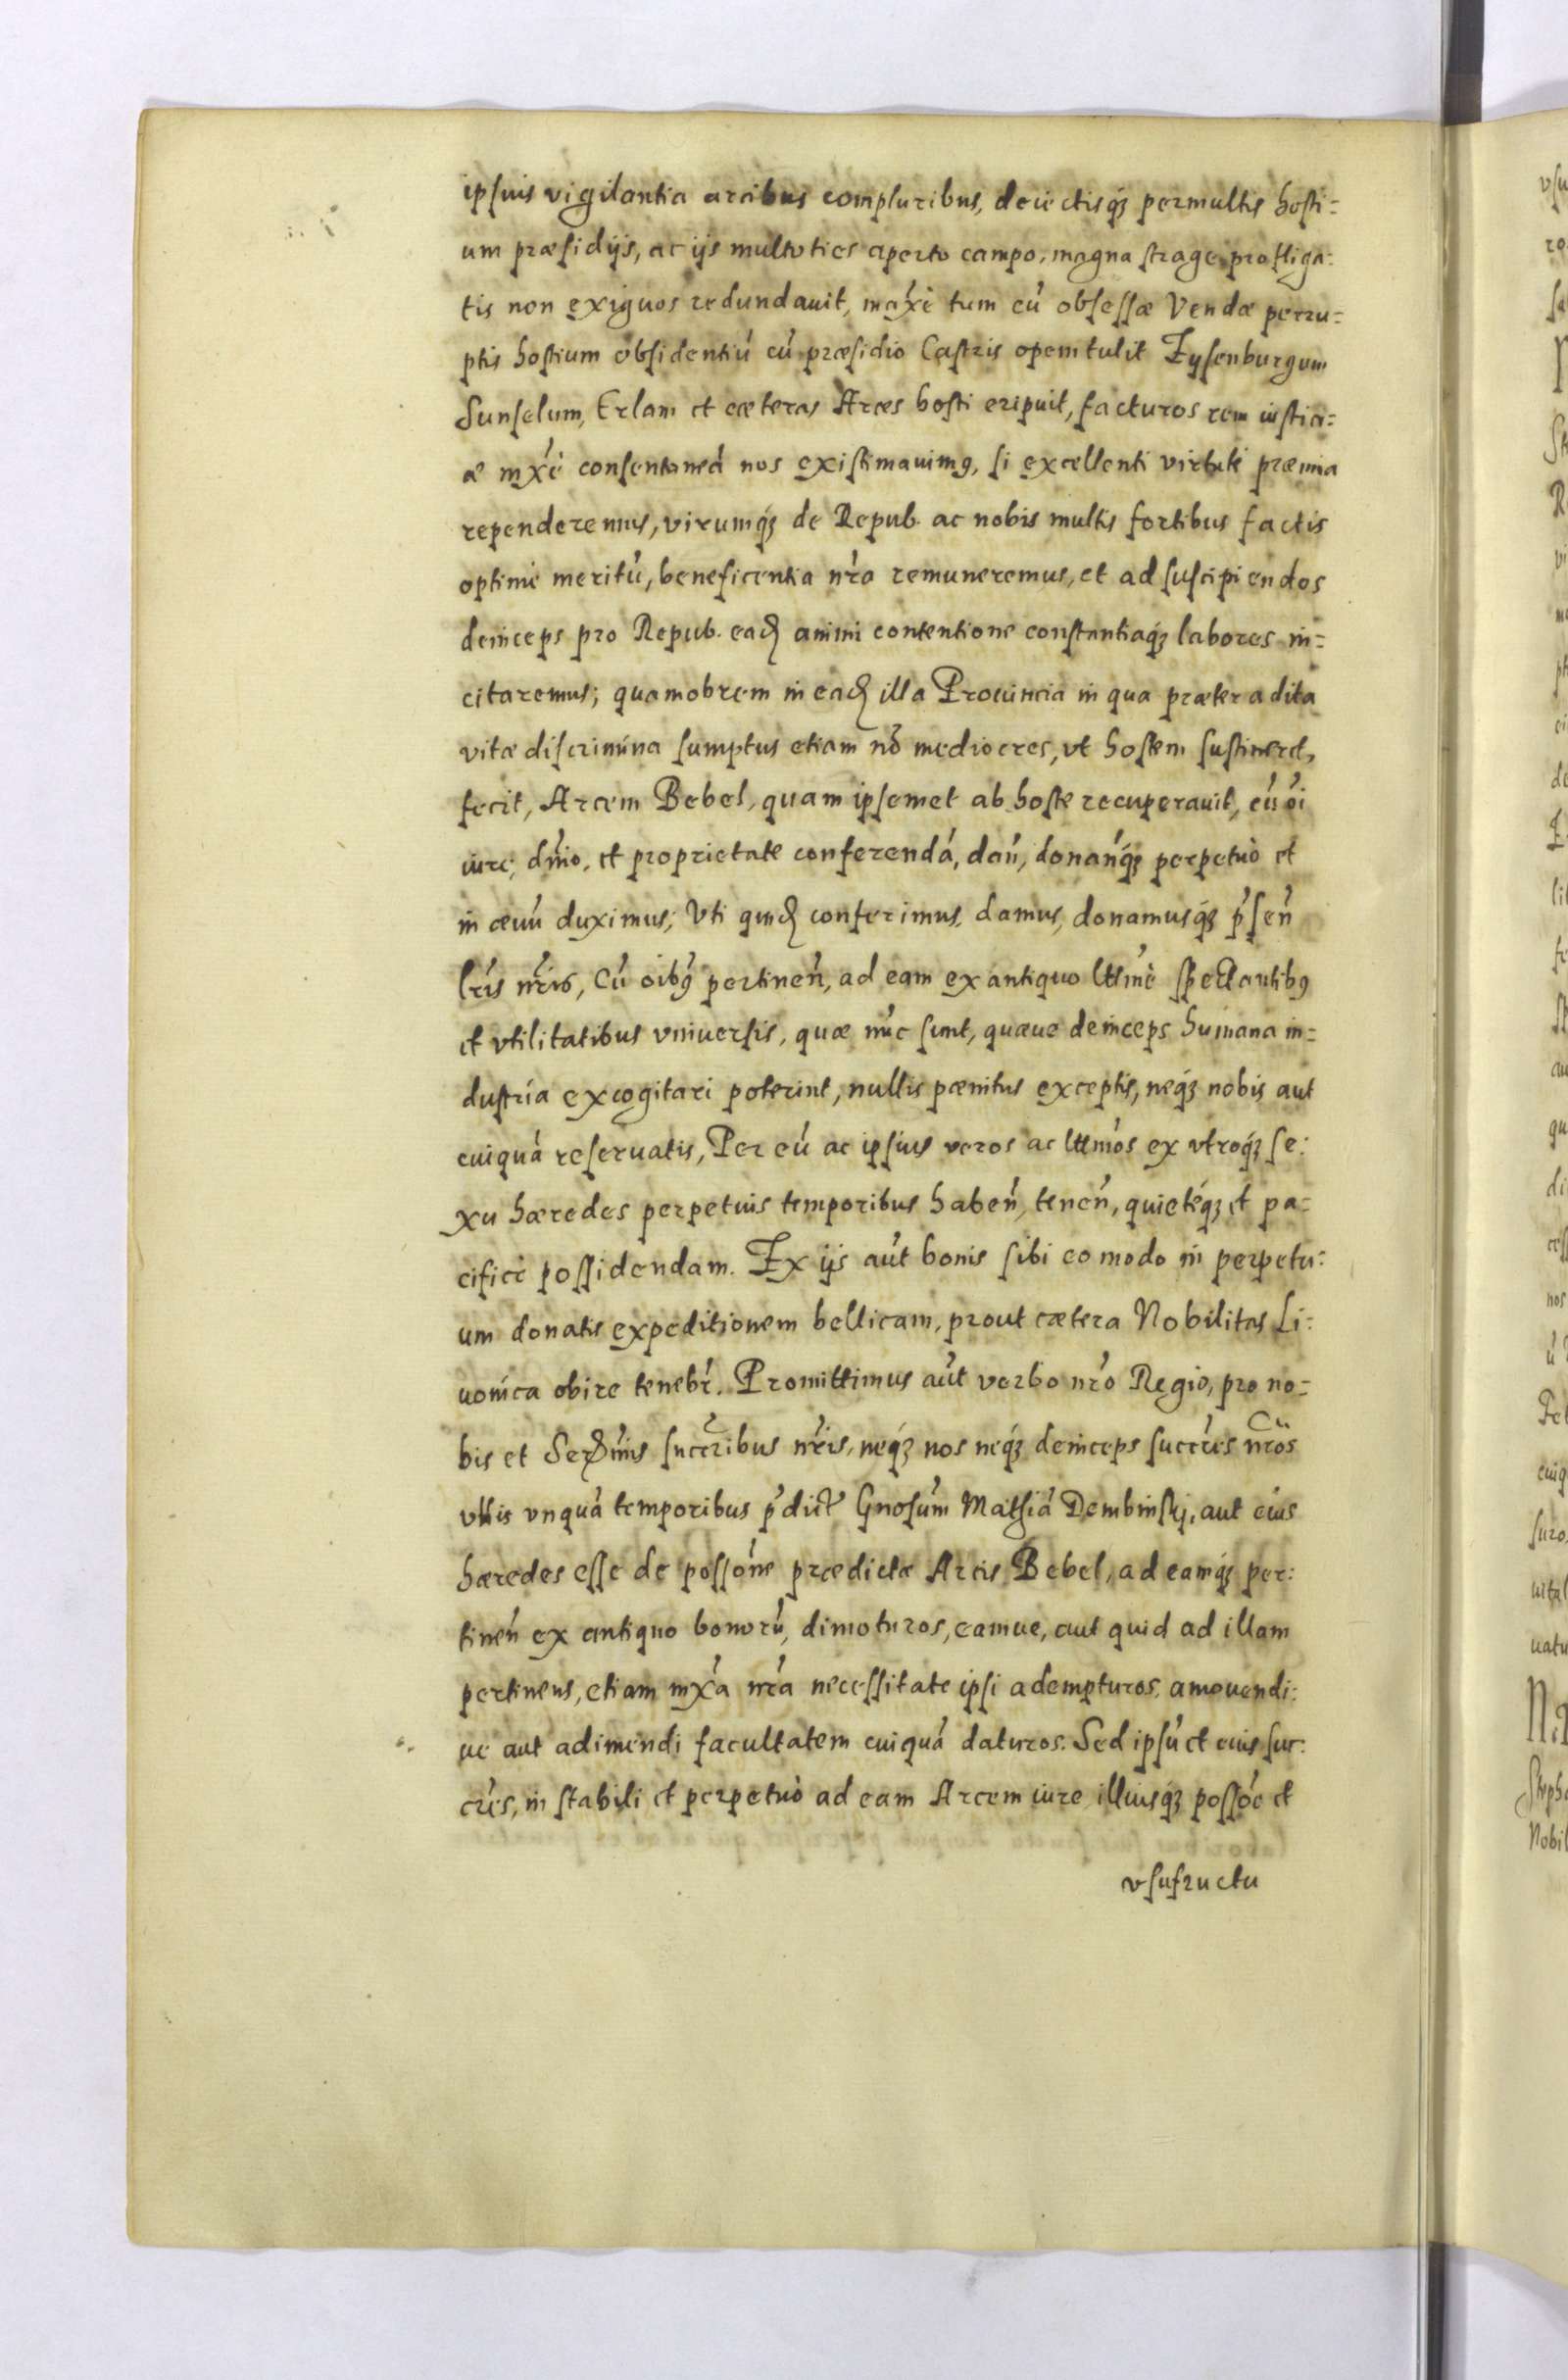 ipsius vigilantia arcibus compluribus, deiectisq́ꝫ permultis hosti=
um præsidijs, ac ijs multoties aperto campo, magna strage profliga:
tis non exiguos redundauit, max̃è tum cũ obsessæ Vendæ perru=
ptis hostium obsidentiũ cũ præsidio Castris opem tulit Eysenburgum
Sunselum, Erlam et cæteras Arces hosti eripuit, facturos rem iustici=
æ mx̃è consentaneã nos existimauimꝰ, si excellenti virtuti præmia
rependeremus, virumq́ꝫ de Repub. ac nobis multis fortibus factis
optimè meritũ, beneficentia nr̃a remuneremus, et ad suscipiendos
deinceps pro Repub. eadẽ animi contentione constantiaq́ꝫ labores in=
citaremus; quamobrem in eadẽ illa Prouincia in qua præter adita
vitæ discrimina sumptus etiam nõ mediocres, vt hostem sustineret,
fecit, Arcem Bebel, quam ipsemet ab hoste recuperauit, cũ oĩ
iure, dñio, et proprietate conferendã, dañ, donanq́ꝫ perpetuò et
in æuũ duximus; Vti quidẽ conferimus, damus, donamusq́ꝫ p̃señ
lr̃is nr̃is, Cũ oĩbꝰ pertineñ, ad eam ex antiquo lttimè spectantibꝰ
et vtilitatibus vniuersis, quæ nũc sunt, quæue deinceps humana in=
dustria excogitari poterint, nullis pœnitus exceptis, neq́ꝫ nobis aut
cuiquã reseruatis, Per eũ ac ipsius veros ac lttimos ex vtroq́ꝫ se:
xu hæredes perpetuis temporibus habeñ, teneñ, quietéq́ꝫ et pa=
cificè possidendam. Ex ijs aũt bonis sibi eo modo in perpetu:
um donatis expeditionem bellicam, prout cætera Nobilitas Li:
uonica obire tenebr̃. Promittimus aũt verbo nr̃o Regio, pro no=
bis et Serẽmis succr̃ibus nr̃is, neq́ꝫ nos neq́ꝫ deinceps succr̃es nr̃os
vllis vnquã temporibus p̃dict̃ Gnosũm Mathiã Dembinskj, aut eius
hæredes esse de possõne prædictæ Arcis Bebel, ad eamq́ꝫ per:
tineñ ex antiquo bonorũ, dimoturos, eamue, aut quid ad illam
pertinens, etiam mx̃a nr̃a necessitate ipsi adempturos, amouendi:
ue aut adimendi facultatem cuiquã daturos. Sed ipsũ et eius suc:
cr̃es, in stabili et perpetuò ad eam Arcem iure, illiusq́ꝫ possõe et
vsufructu